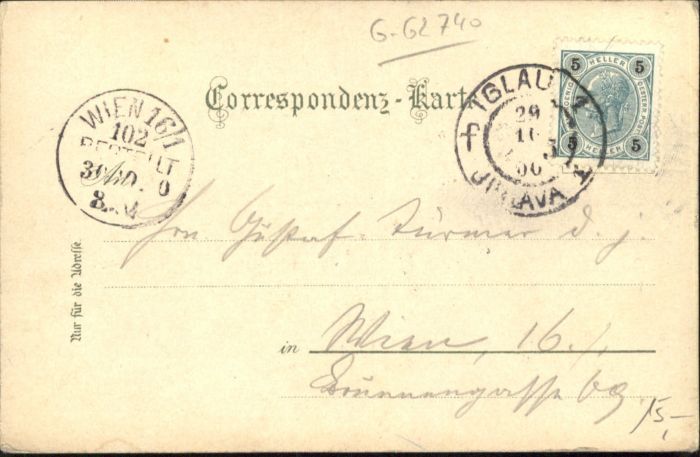 G-62740
5 HELLER 5
5 HELLER 5
Correspondenz-Karte
IGLAU 1
29
00
JIHLAVA
WIEN 16/1
102
BESTELLT
8
Hrn. Gustaf Türmer d. j.
Nur für die Adresse.
in Wien, 16./
Brunnengasse 69
15,-